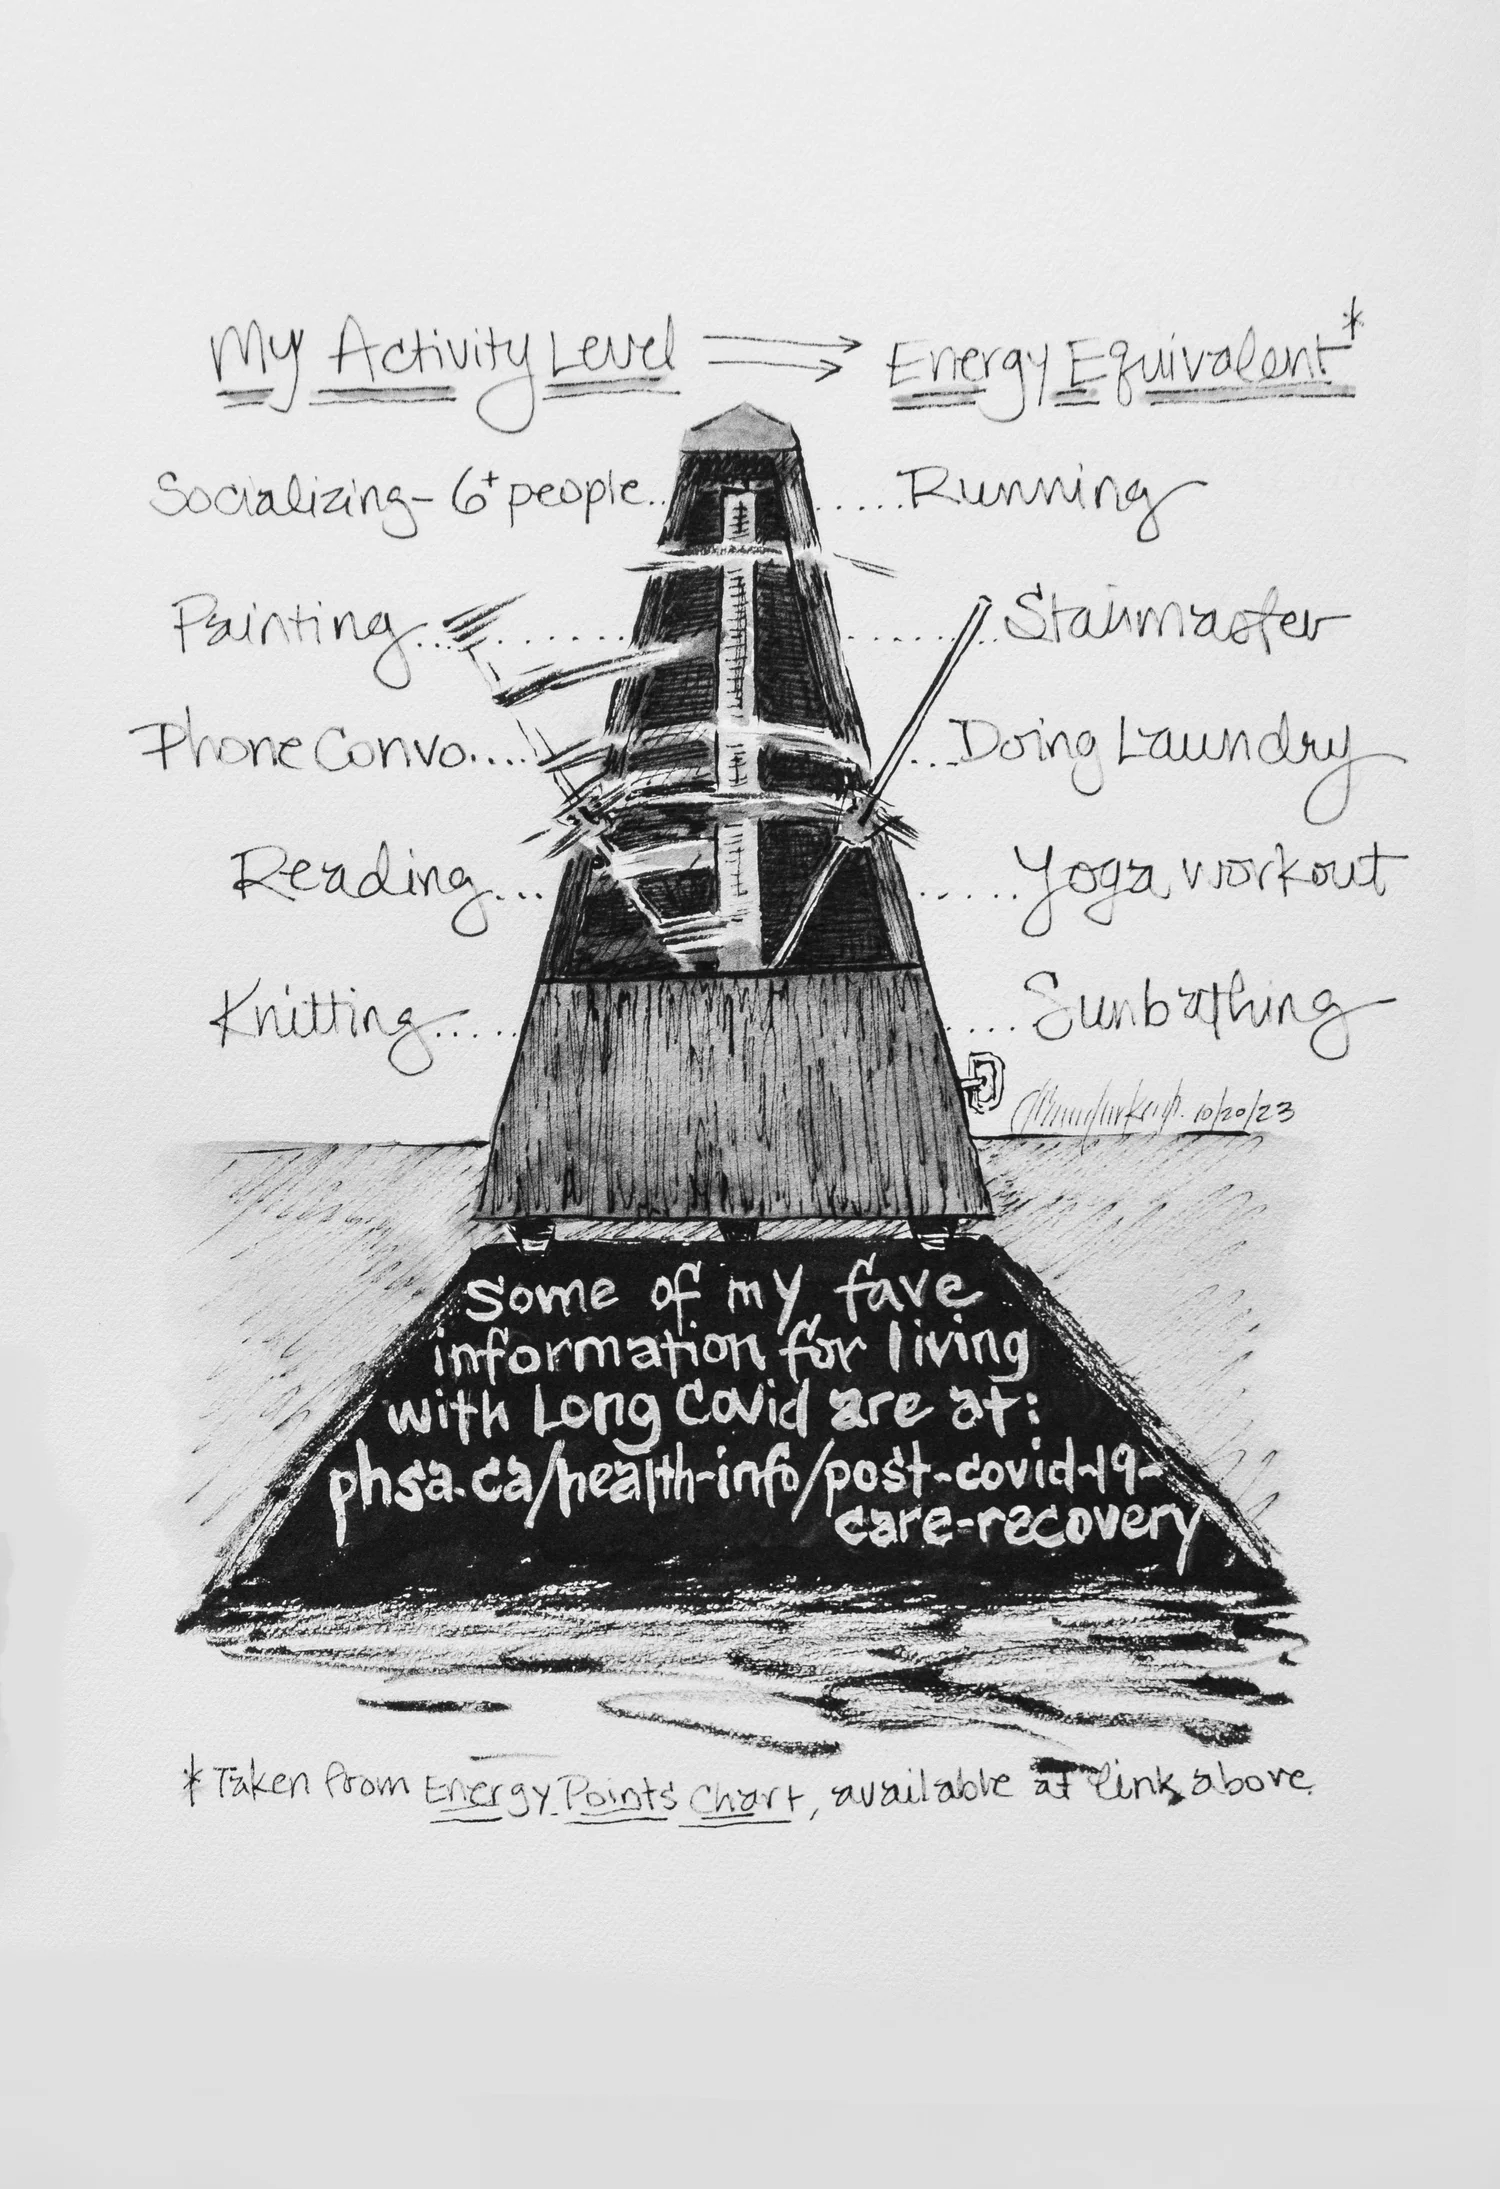 My Activity Level Energy Equivalent*
Socializing - 6+ people..... Running
Painting............ Stairmaster
Phone Convo........ Doing Laundry
Reading........ Yoga workout
Knitting......... Sunbathing
10/20/23
Some of my fave
information for living
with Long Covid are at:
phsa.ca/health-info/post-covid-19-
care-recovery
* Taken from Energy Points Chart, available at link above.